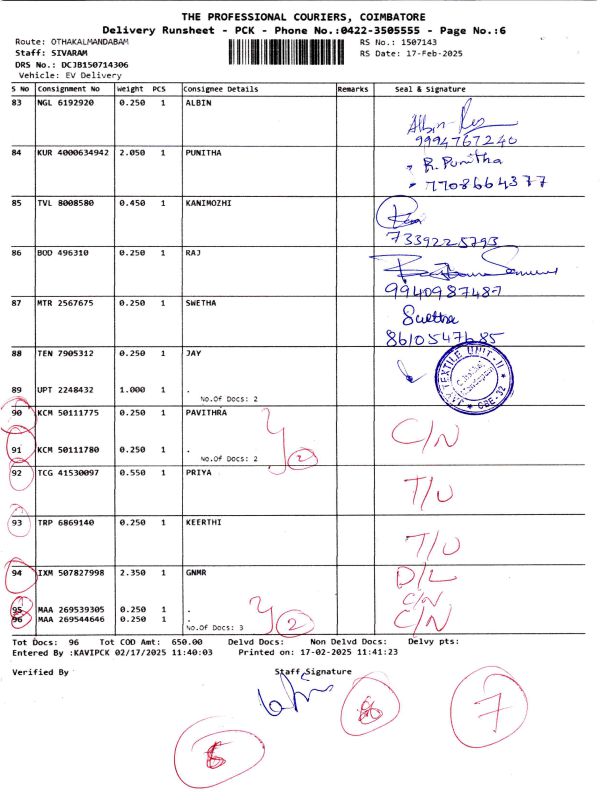 THE PROFESSIONAL COURIERS, COIMBATORE
Delivery Runsheet - PCK - Phone No.:0422-3505555 - Page No.:6
Route: OTHAKALMANDABAM RS No.: 1507143
Staff: SIVARAM RS Date: 17-Feb-2025
DRS No.: DCJB150714306
Vehicle: EV Delivery
S No Consignment No Weight PCS Consignee Details Remarks Seal & Signature
83 NGL 6192920 0.250 1 ALBIN
9994767240
84 KUR 4000634942 2.050 1 PUNITHA R. Punitha
7708664377
85 TVL 8008580 0.450 1 KANIMOZHI
7339225793
86 BOD 496310 0.250 1 RAJ
9940987487
87 MTR 2567675 0.250 1 SWETHA Swetha
8610547685
88 TEN 7905312 0.250 1 JAY
TEXTILE UNIT-II
CBE-32
89 UPT 2248432 1.000 1 .
No.Of Docs: 2
90 KCM 50111775 0.250 1 PAVITHRA C/N
91 KCM 50111780 0.250 1 . 2
No.Of Docs: 2
92 TCG 41530097 0.550 1 PRIYA T/U
93 TRP 6869140 0.250 1 KEERTHI T/U
94 IXM 507827998 2.350 1 GNMR D/L
95 MAA 269539305 0.250 1 . C/N
96 MAA 269544646 0.250 1 . 2 C/N
No.Of Docs: 3
Tot Docs: 96 Tot COD Amt: 650.00 Delvd Docs: Non Delvd Docs: Delvy pts:
Entered By :KAVIPCK 02/17/2025 11:40:03 Printed on: 17-02-2025 11:41:23
Verified By Staff Signature
7